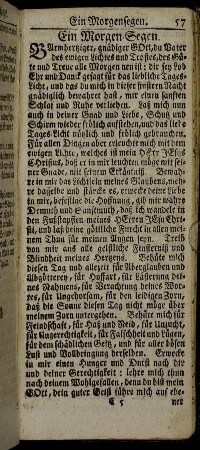 Ein Morgensegen. 57
Ein Morgen-Segen.
Barmhertziger, gnädiger GOtt, du Vater
des ewigen Lichtes und Trostes, des Gü-
te und Treue alle Morgen neu ist: dir sey Lob
Ehr und Danck gesagt für das liebliche Tages-
Licht, und das du mich in dieser finstern Nacht
gnädiglich bewahret hast, mir einen sanfften
Schlaf und Ruhe verliehen. Laß mich nun
auch in deiner Gnad und Liebe, Schutz und
Schirm wieder frölich aufstehen, und das liebe
Tages-Licht nützlich und frölich gebrauchen.
Für allen Dingen aber erleuchte mich mit dem
ewigen Licht, welches ist mein HErr JEsus
Christus, daß er in mir leuchte, mit sei-
ner Gnade, mit seinem Erkäntniß. Bewah-
re in mir das Lichtlein meines Glaubens, meh-
re dasselbe und stärcke es, erwecke deine Liebe
in mir, befestige die Hoffnung, gib mir wahre
Demuth und Sanfftmuth, daß ich wandele in
den Fußstapffen meines HErrn JEsu Chri-
sti, und laß deine göttliche Furcht in allen mei-
nem Thun für meinen Augen seyn. Treib
von mir aus alle geistliche Finsterniß und
Blindheit meines Hertzens. Behüte mich
diesen Tag und allezeit für Aberglauben und
Abgötterey, für Hoffart, für Lästerung dei-
nes Nahmens, für Verachtung deines Wor-
tes, für Ungehorsam, für den leidigen Zorn,
daß die Sonne diesen Tag nicht möge über
meinem Zorn untergehen. Behüte mich für
Feindschaft, für Haß und Neid, für Unzucht,
für Ungerechtigkeit, für Falschheit und Lügen,
für dem schädlichen Geitz, und für aller bösen
Lust und Vollbringung derselben. Erwecke
in mir einen Hunger und Durst nach dir
und deiner Gerechtigkeit: lehre mich thun
nach deinem Wohlgefallen, denn du bist mein
GOtt, dein guter Geist führe mich auf ebe-
E 5 ner